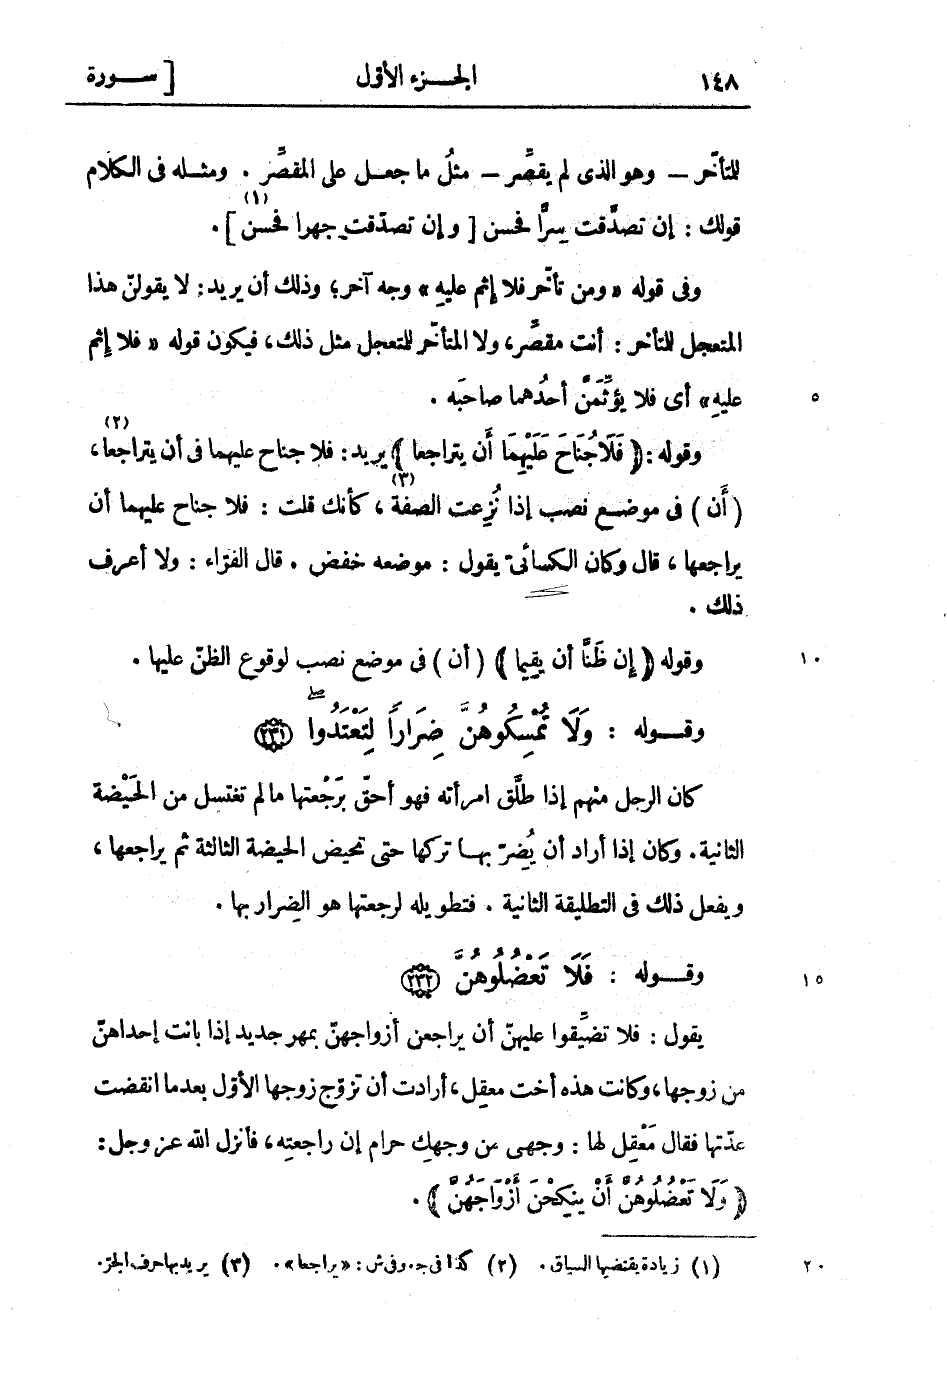 ١٤٨ الجزء الأول [ سورة
للتأخر — وهو الذى لم يقصِّر — مثلُ ما جعل على المقصِّر . ومثله فى الكلام
قولك : إن تصدَّقت سِرًّا فحسن [ وإن تصدّقت جهرا فحسن ] (١) .
وفى قوله « ومن تأخّر فلا إثم عليه » وجه آخر؛ وذلك أن يريد: لا يقولنّ هذا
المتعجل للتأخر : أنت مقصِّر، ولا المتأخّر للتعجل مثل ذلك، فيكون قوله « فلا إثم
عليه » أى فلا يؤثِّمَنَّ أحدُهما صاحبَه . ٥
وقوله : ﴿ فَلَا جُنَاحَ عَلَيْهِمَا أَن يتراجعا ﴾ يريد: فلا جناح عليهما فى أن يتراجعا (٢)،
( أَن ) فى موضع نصب إذا نُزِعت الصفة (٣) ، كأنك قلت : فلا جناح عليهما أن
يراجعها ، قال وكان الكسائىّ يقول : موضعه خفض . قال الفرّاء : ولا أعرف
ذلك .
وقوله ﴿ إن ظَنَّا أن يقيما ﴾ ( أن ) فى موضع نصب لوقوع الظنّ عليها . ١٠
وقوله : وَلَا تُمْسِكُوهُنَّ ضِرَارًا لِتَعْتَدُوا ۚ ﴿٢٣١﴾
كان الرجل منهم إذا طلَّق امرأته فهو أحقّ برَجْعتها ما لم تغتسل من الحَيْضة
الثانية. وكان إذا أراد أن يُضِرّ بها تركها حتى تحيض الحيضة الثالثة ثم يراجعها ،
ويفعل ذلك فى التطليقة الثانية . فتطويله لرجعتها هو الضِرار بها .
وقوله : فَلَا تَعْضُلُوهُنَّ ﴿٢٣٢﴾ ١٥
يقول : فلا تضيِّقوا عليهنّ أن يراجعن أزواجهنّ بمهر جديد إذا بانت إحداهنّ
من زوجها، وكانت هذه أخت معقِل، أرادت أن تزوّج زوجها الأوّل بعدما انقضت
عدّتها فقال مَعْقِل لها : وجهى من وجهكِ حرام إن راجعتِه، فأنزل الله عز وجل :
﴿ وَلَا تَعْضُلُوهُنَّ أَنْ ينكِحْنَ أَزْوَاجَهُنَّ ﴾ .
(١) زيادة يقتضيها السياق . (٢) كذا فى جـ . وفى ش : « يراجعا » . (٣) يريد بها حرف الجرّ . ٢٠